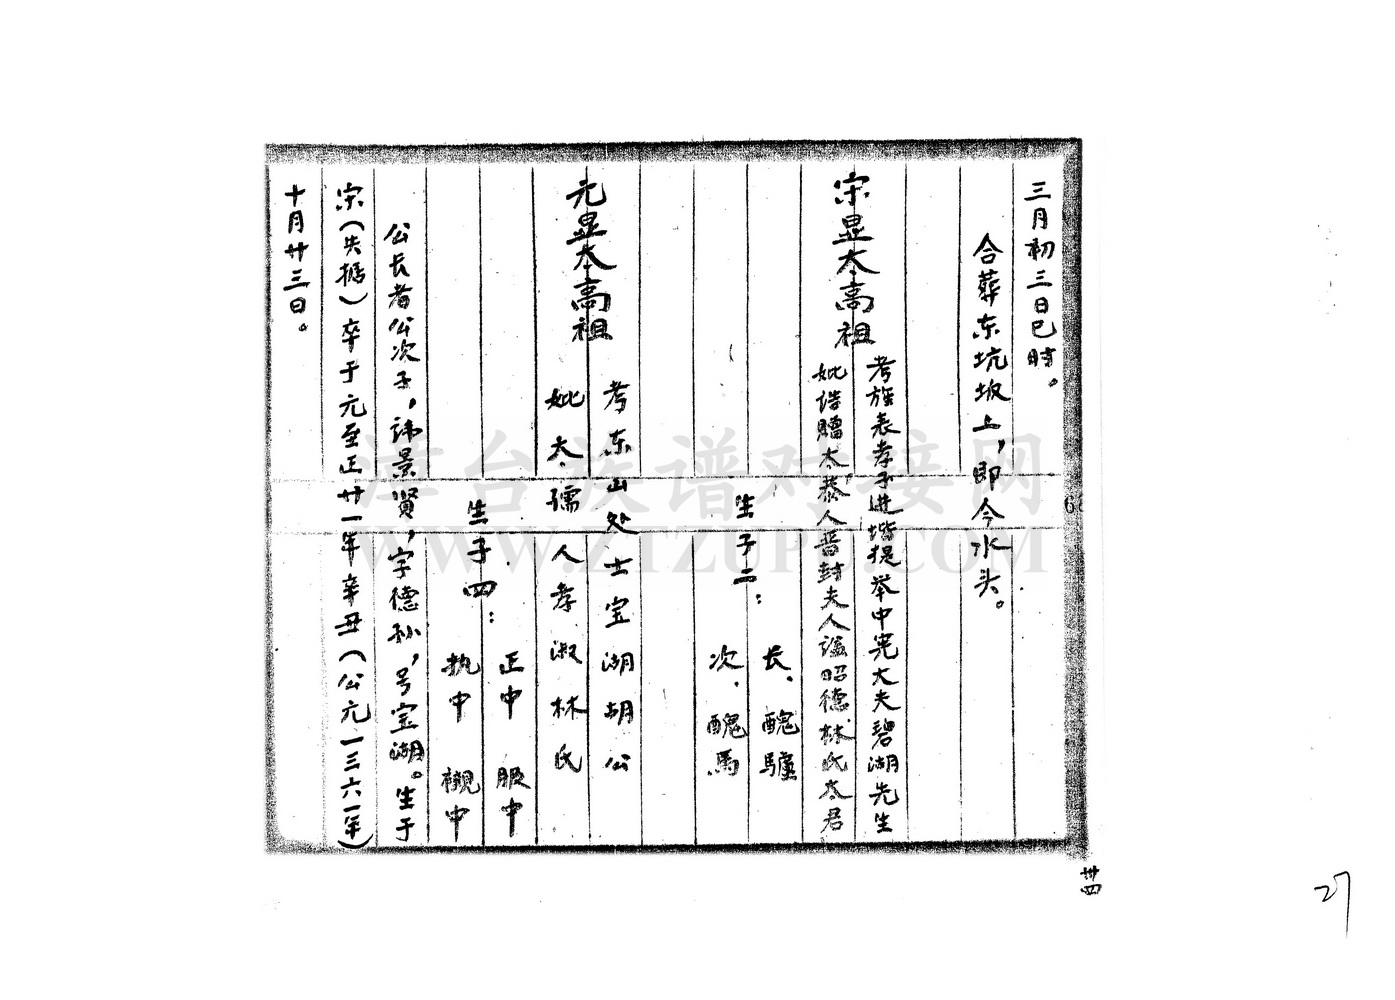 三月初三日巳时。
合葬东坑坂上，即今水头。
宋显太高祖
考旌表孝子进阶提举中宪大夫碧湖先生
妣诰赠太恭人晋封夫人谥昭德林氏太君
生子二：
长．醜驢
次．醜馬
元显太高祖
考东山处士宝湖胡公
妣太孺人孝淑林氏
生子四：
正中 服中
执中 襯中
公长者公次子，讳景贤，字德孙，号宝湖。生于
宋（失据）卒于元至正廿一年辛丑（公元一三六一年）
十月廿三日。
卅四
27
漳台族谱对接网
WWW.ZTZUPU.COM